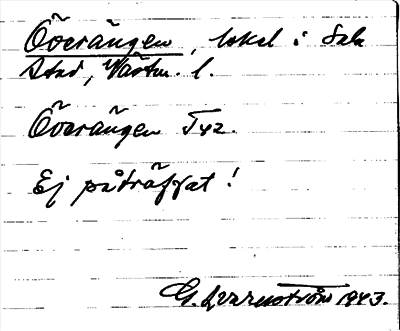 Överängen, lokal i Sala
stad, Västm. l.
Överängen T42.
Ej påträffat!
G. Kvarnström 1943.